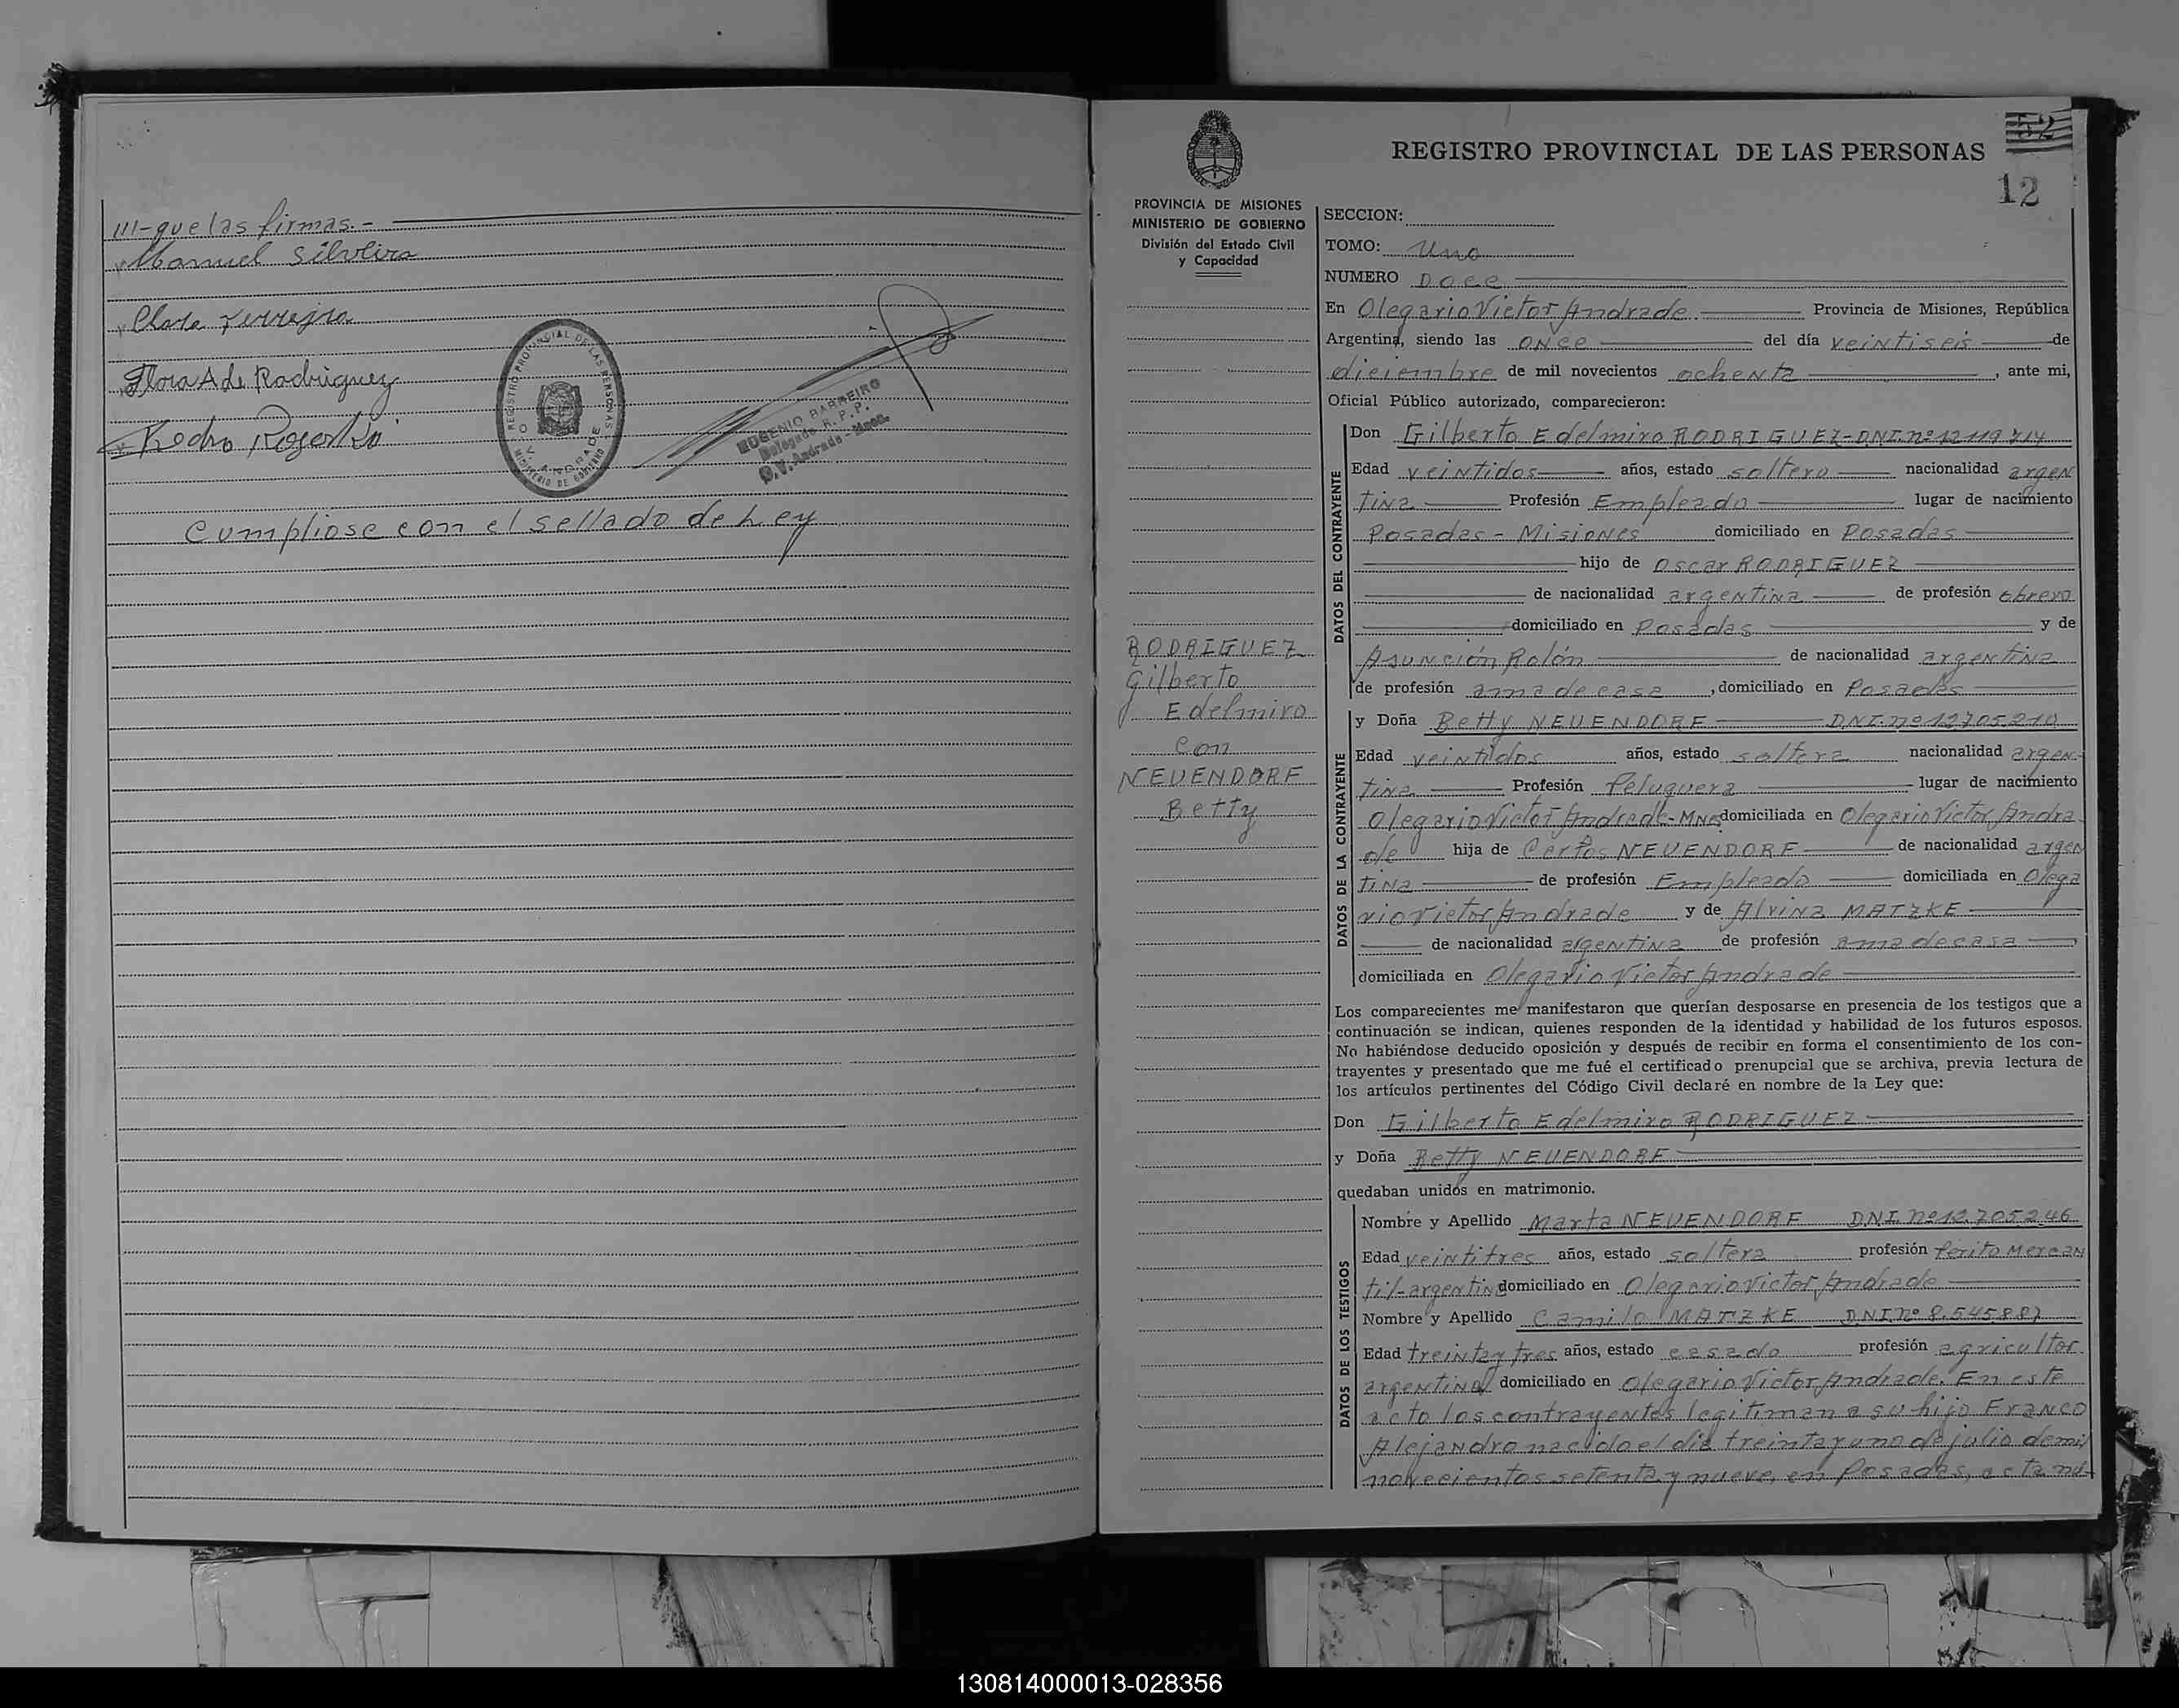 III-que las firmas.-
Manuel Silveira
Clara Ferreyra
Flora A de Rodriguez
Pedro
REGISTRO PROVINCIAL DE LAS PERSONAS
O. V. ANDRADE
MINISTERIO DE GOBIERNO
EUGENIO BARREIRO
Delegado R. P. P.
O. V. Andrade - Mnes.
Cumpliose con el sellado de Ley
52
REGISTRO PROVINCIAL DE LAS PERSONAS
12
PROVINCIA DE MISIONES
MINISTERIO DE GOBIERNO
División del Estado Civil
y Capacidad
RODRIGUEZ
Gilberto
Edelmiro
con
NEUENDORF
Betty
SECCION:
TOMO: Uno
NUMERO Doce
En Olegario Victor Andrade. Provincia de Misiones, República
Argentina, siendo las once del día veintiseis de
diciembre de mil novecientos ochenta, ante mi,
Oficial Público autorizado, comparecieron:
DATOS DEL CONTRAYENTE
Don Gilberto Edelmiro RODRIGUEZ-DNI.nº 12.119.714
Edad veintidos años, estado soltero nacionalidad argen
tina Profesión Empleado lugar de nacimiento
Posadas - Misiones domiciliado en Posadas
hijo de Oscar RODRIGUEZ
de nacionalidad argentina de profesión obrero
domiciliado en Posadas y de
Asunción Rolón de nacionalidad argentina
de profesión ama de casa, domiciliado en Posadas
DATOS DE LA CONTRAYENTE
y Doña Betty NEUENDORF DNI.nº 12.705.210
Edad veintidos años, estado soltera nacionalidad argen-
tina Profesión Peluquera lugar de nacimiento
Olegario Victor Andrade-MNes domiciliada en Olegario Victor Andra
de hija de Carlos NEUENDORF de nacionalidad argen
tina de profesión Empleado domiciliada en Olega
rio Victor Andrade y de Alvina MATZKE
de nacionalidad argentina de profesión ama de casa
domiciliada en Olegario Victor Andrade
Los comparecientes me manifestaron que querían desposarse en presencia de los testigos que a
continuación se indican, quienes responden de la identidad y habilidad de los futuros esposos.
No habiéndose deducido oposición y después de recibir en forma el consentimiento de los con-
trayentes y presentado que me fué el certificado prenupcial que se archiva, previa lectura de
los artículos pertinentes del Código Civil declaré en nombre de la Ley que:
Don Gilberto Edelmiro RODRIGUEZ
y Doña Betty NEUENDORF
quedaban unidos en matrimonio.
DATOS DE LOS TESTIGOS
Nombre y Apellido Marta NEUENDORF DNI.nº 12.705.246
Edad veintitres años, estado soltera profesión Perito Mercan
til-argentina domiciliado en Olegario Victor Andrade
Nombre y Apellido Camilo MATZKE DNI nº 8.545.887
Edad treinta y tres años, estado casado profesión agricultor
argentina domiciliado en Olegario Victor Andrade. En este
acto los contrayentes legitiman a su hijo Franco
Alejandro nacido el día treinta y uno de julio de mil
novecientos setenta y nueve, en Posadas, acta nú-
130814000013-028356